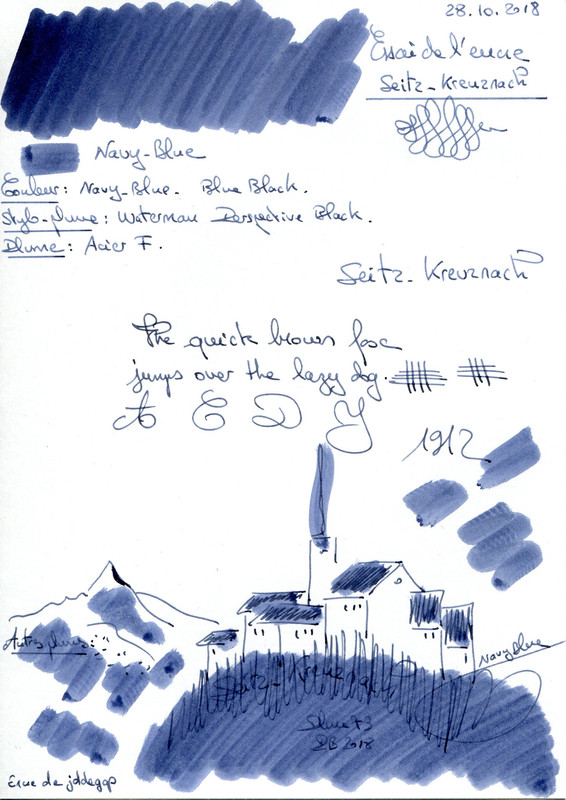 28.10.2018
Essai de l'encre
Seitz-Kreuznach
Navy-Blue
Couleur: Navy-Blue. Blue Black.
Stylo-plume: Waterman Perspective Black.
Plume: Acier F.
Seitz-Kreuznach
The quick brown fox
jumps over the lazy dog.
A E D Y
1912
Autres plumes:
Navy Blue
Seitz-Kreuznach
2018
Encre de jddegap